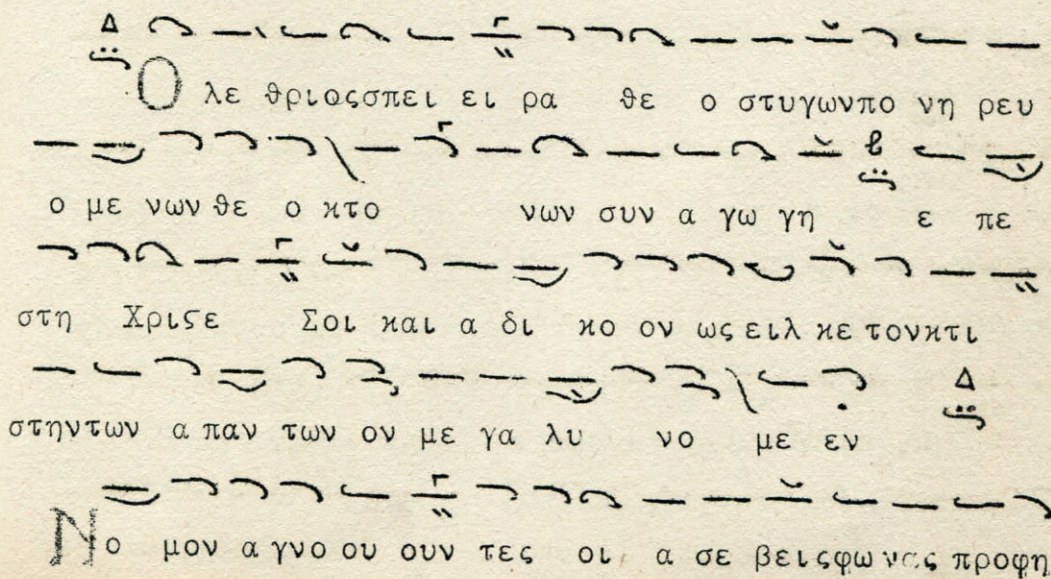 Ο λε θριοςσπει ει ρα θε ο στυγωνπο νη ρευ
ο με νων θε ο κτο νων συν α γω γη ε πε
στη Χριϛε Σοι και α δι κο ον ως ειλ κε τονκτι
στηντων α παν των ον με γα λυ νο με εν
Νο μον α γνο ου ουν τες οι α σε βεις φω νας προφη